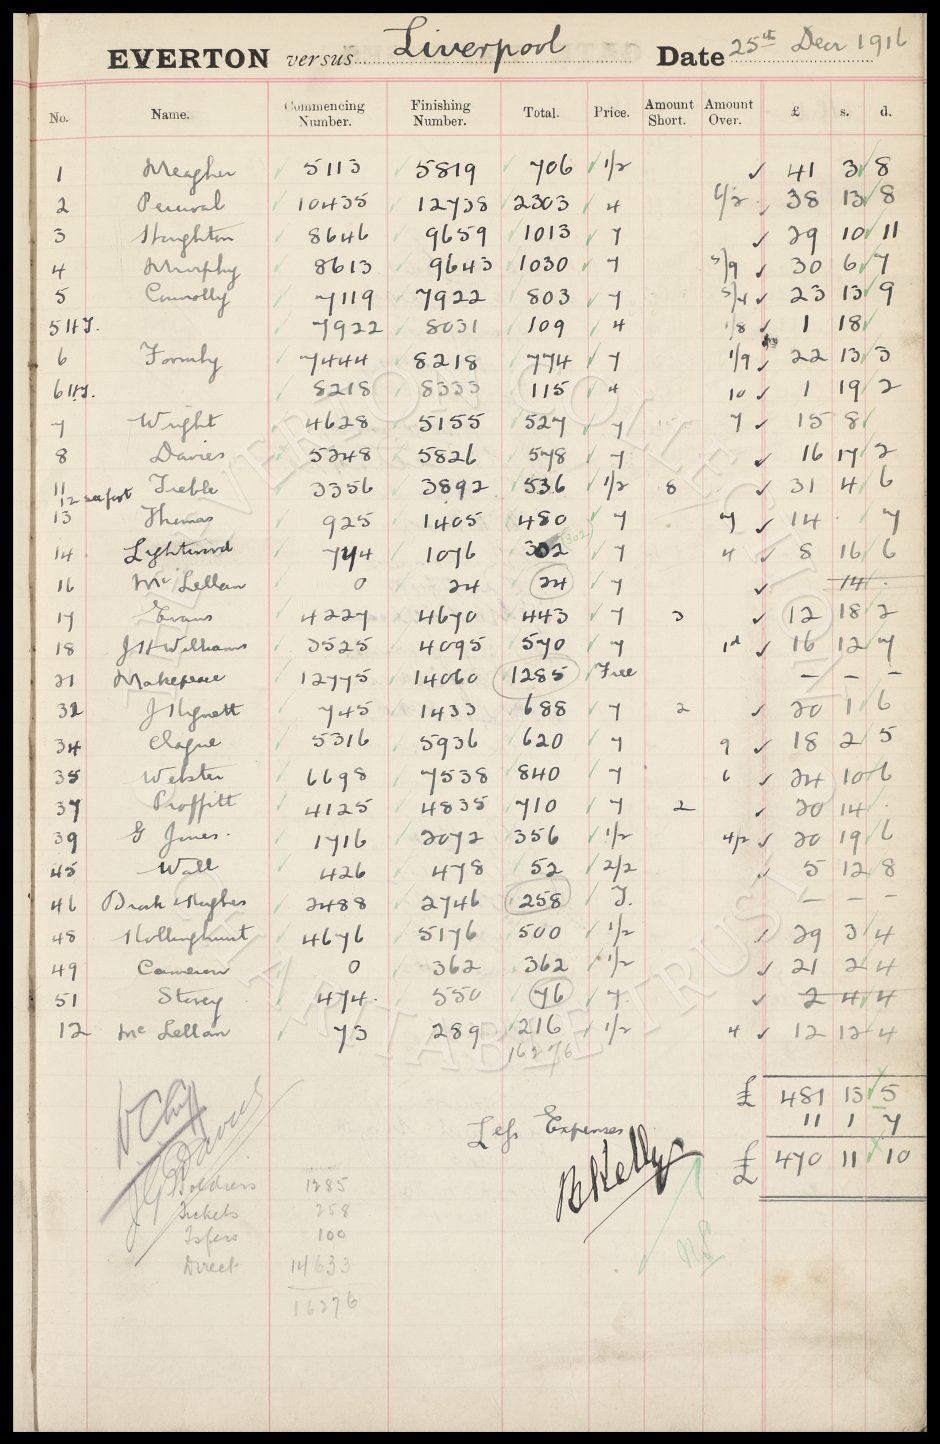 EVERTON versus Liverpool Date 25th Decr 1916
No. Name. Commencing Number. Finishing Number. Total. Price. Amount Short. Amount Over. £ s. d.
1 Meagher 5113 5819 706 1/2 41 3 8
2 Percival 10435 12738 2303 4 6/2 38 13 8
3 Houghton 8646 9659 1013 7 29 10 11
4 Murphy 8613 9643 1030 7 5/9 30 6 7
5 Connolly 7119 7922 803 7 5/4 23 13 9
5 HT. 7922 8031 109 4 1/8 1 18
6 Formby 7444 8218 774 7 1/9 22 13 3
6 HT. 8218 8333 115 4 10 1 19 2
7 Wright 4628 5155 527 7 7 15 8
8 Davies 5248 5826 578 7 16 17 2
11 Treble 3356 3892 536 1/2 8 31 4 6
12 see foot
13 Thomas 925 1405 480 7 7 14 . 7
14 Lightwood 774 1076 302 (302) 7 4 8 16 6
16 Mc Lellan 0 24 24 7 14 .
17 Evans 4227 4670 443 7 3 12 18 2
18 J H Williams 3525 4095 570 7 1d 16 12 7
21 Makepeace 12775 14060 1285 Free - - -
32 J Rignett 745 1433 688 7 2 20 1 6
34 Clague 5316 5936 620 7 9 18 2 5
35 Webster 6698 7538 840 7 6 24 10 6
37 Proffitt 4125 4835 710 7 2 20 14 .
39 G Jones. 1716 2072 356 1/2 4/2 20 19 6
45 Wall 426 478 52 2/2 5 12 8
46 Hughes 2488 2746 258 T. - - -
48 Hollinghurst 4676 5176 500 1/2 29 3 4
49 Cameron 0 362 362 1/2 21 2 4
51 Storey 474. 550 76 7. 2 4 4
12 Mc Lellan 73 289 216 1/2 4 12 12 4
16276
£ 481 13 5
Less Expenses 11 1 7
£ 470 11 10
W C Cuff
J G Davies
B Kelly
Soldiers 1285
Tickets 258
Tsfers 100
Direct 14633
16276
EVERTON COLLECTION
CHARITABLE TRUST